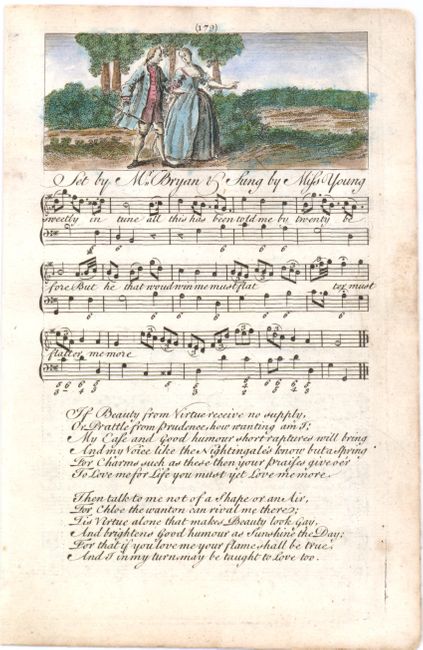 (179)
Set by Mr. Bryan & Sung by Miss Young
sweetly in tune all this has been told me by twenty be
fore But he that woud win me must flat ter must
flatter me more
If Beauty from Virtue receive no supply,
Or Prattle from Prudence, how wanting am I;
My Ease and Good humour short raptures will bring
And my Voice like the Nightingale's know but a Spring
For Charms such as these then your praises give o'er
To Love me for Life you must yet Love me more.
Then talk to me not of a Shape or an Air,
For Chloe the wanton can rival me there;
Tis Virtue alone that makes Beauty look Gay,
And brightens Good humour as Sunshine the Day;
For that if you love me your flame shall be true,
And I in my turn may be taught to Love too.